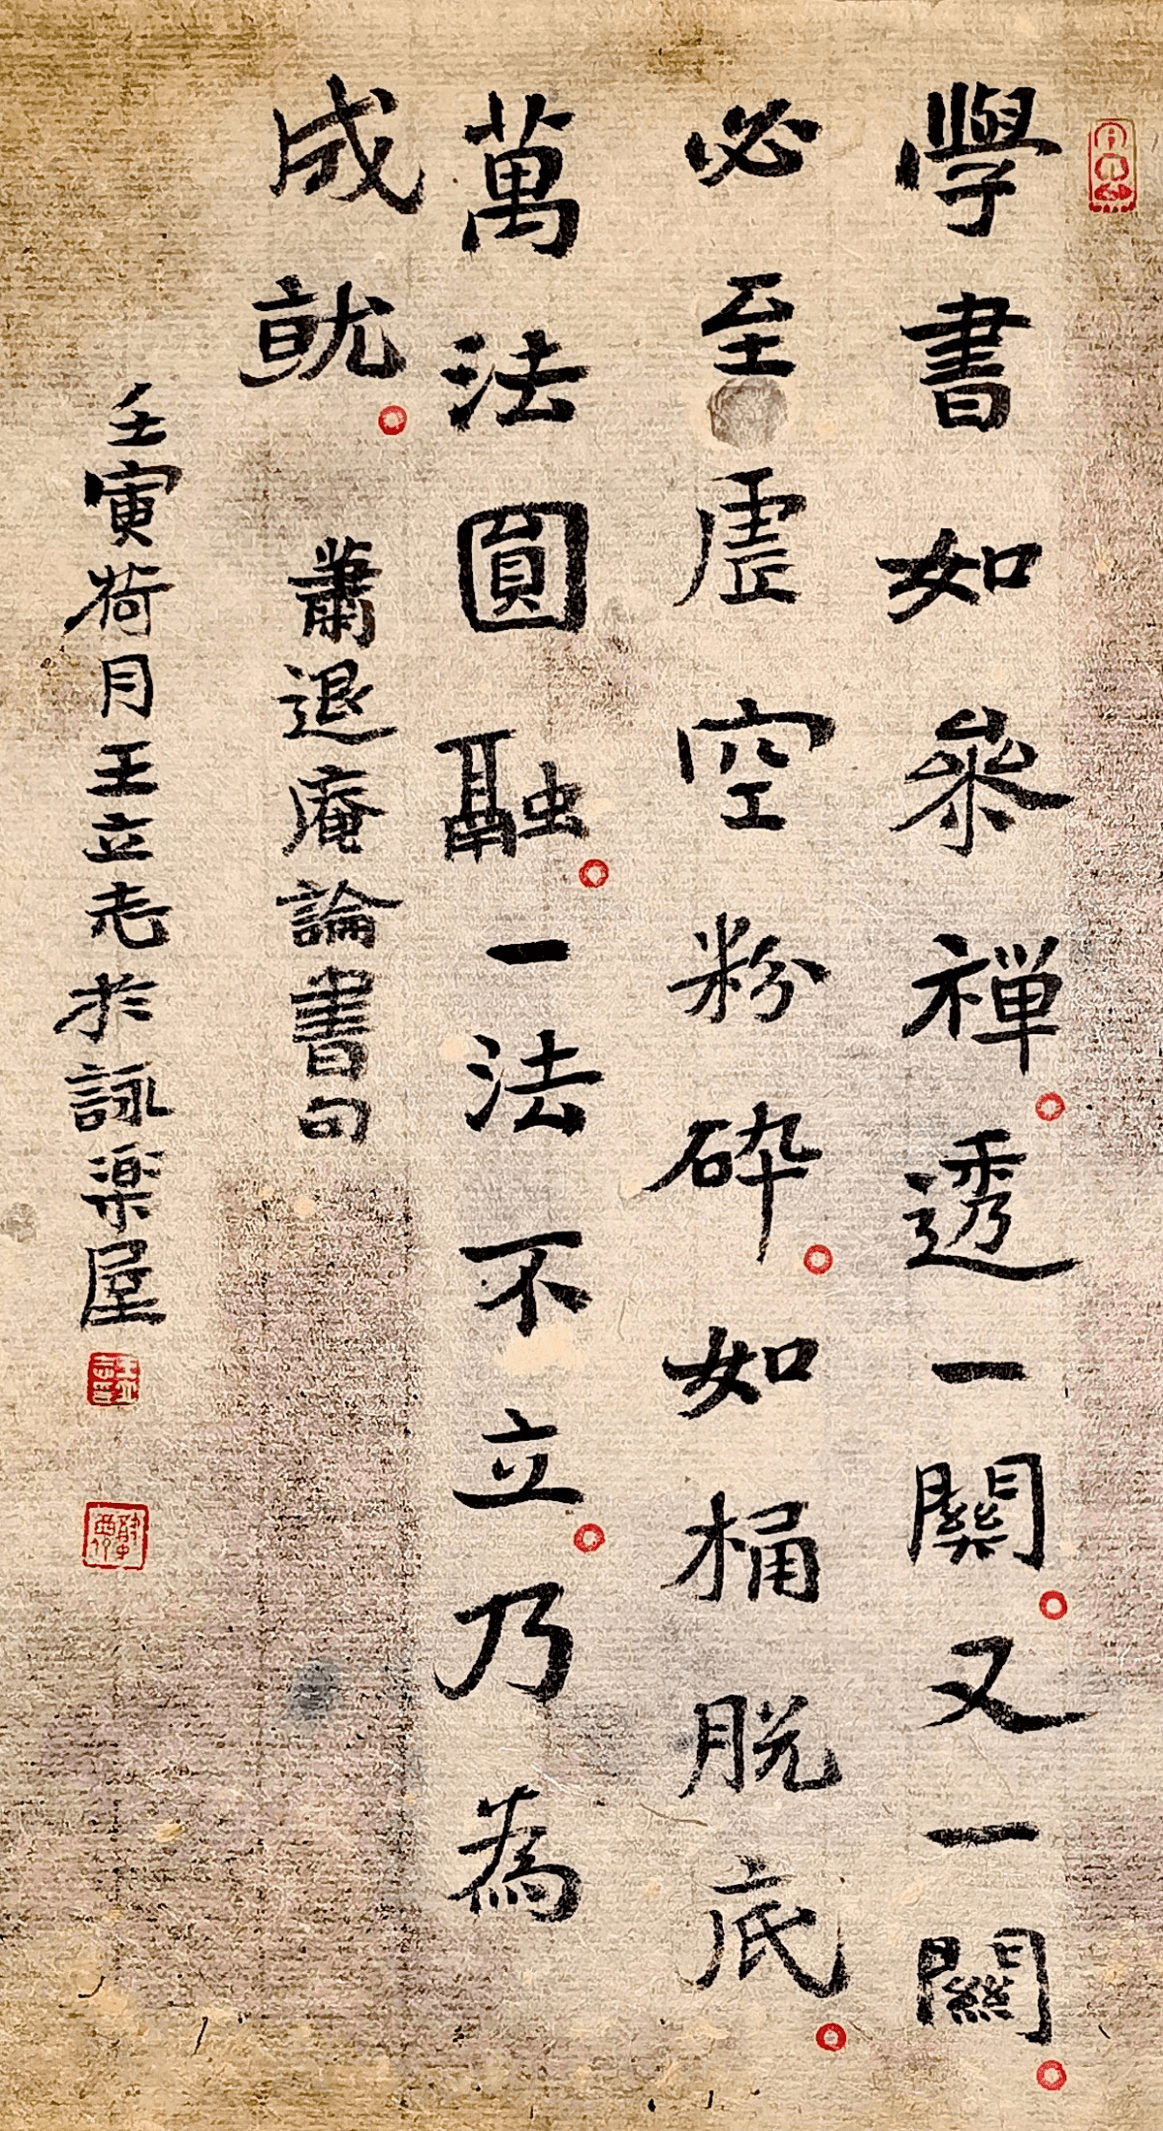 學書如參禪透一關又一關
必至虛空粉碎如桶脫底
萬法圓融一法不立乃為
成就
蕭退庵論書句
壬寅荷月王立志於詠楽屋